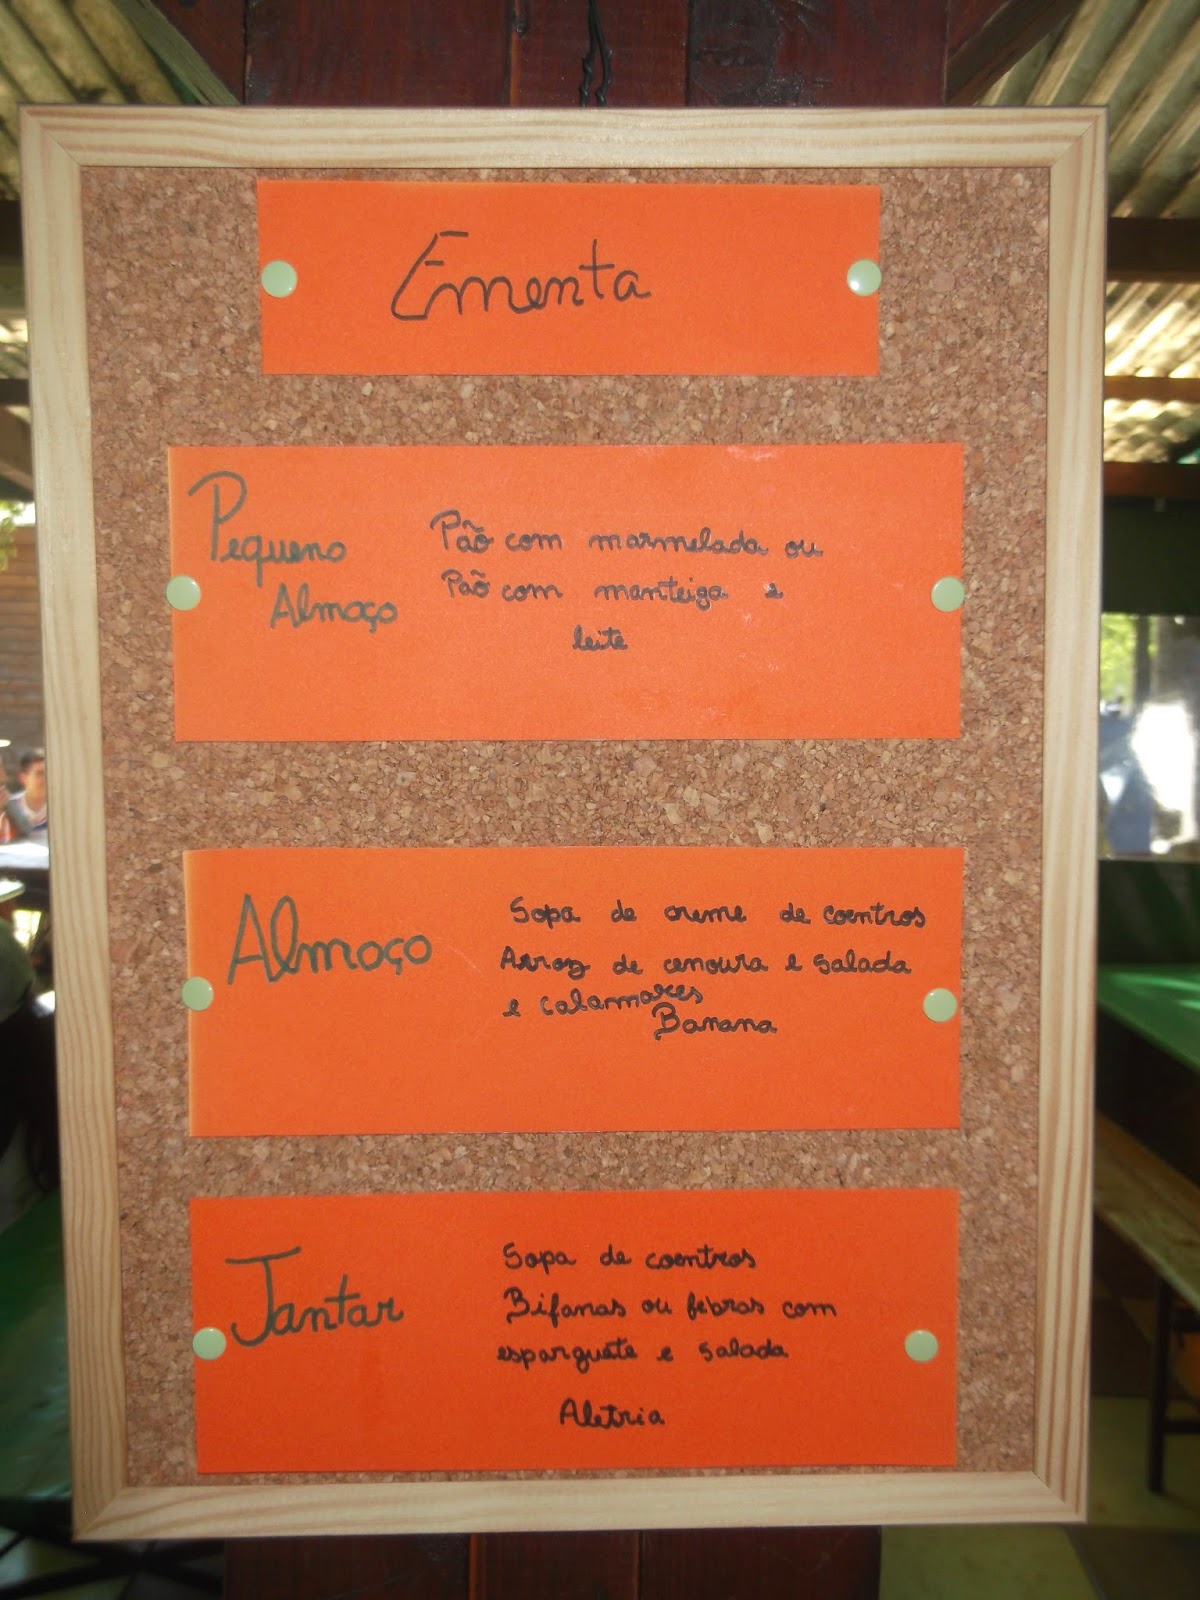 Ementa
Pequeno
Almoço
Pão com marmelada ou
Pão com manteiga e
leite
Almoço
Sopa de creme de coentros
Arroz de cenoura e salada
e calamares
Banana
Jantar
Sopa de coentros
Bifanas ou febras com
esparguete e salada
Aletria